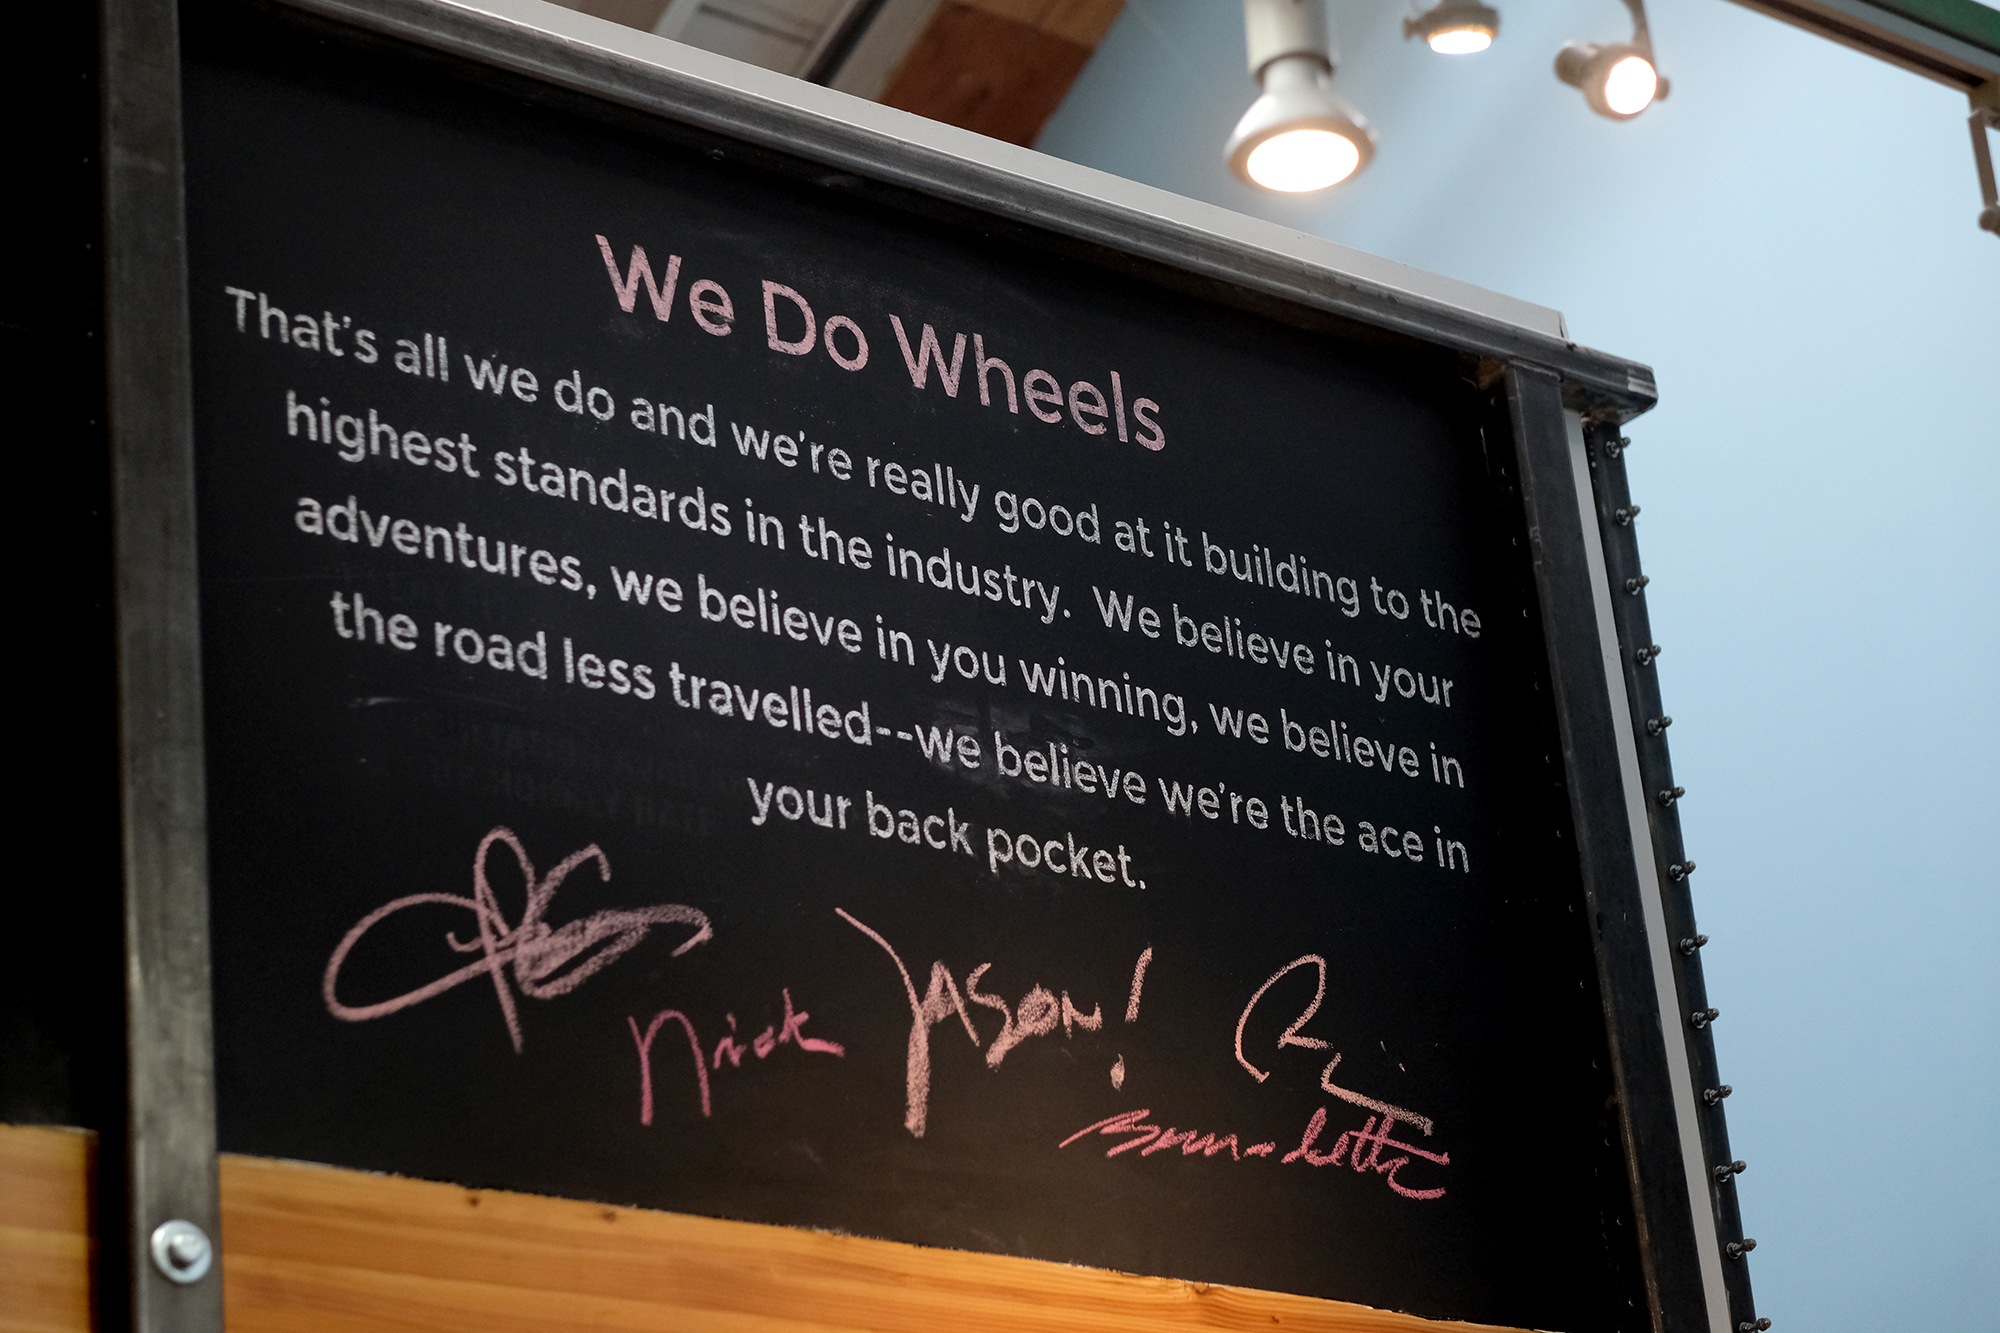 We Do Wheels
That's all we do and we're really good at it building to the
highest standards in the industry.  We believe in your
adventures, we believe in you winning, we believe in
the road less travelled--we believe we're the ace in
your back pocket.
Nick
JASON!
Bernadette